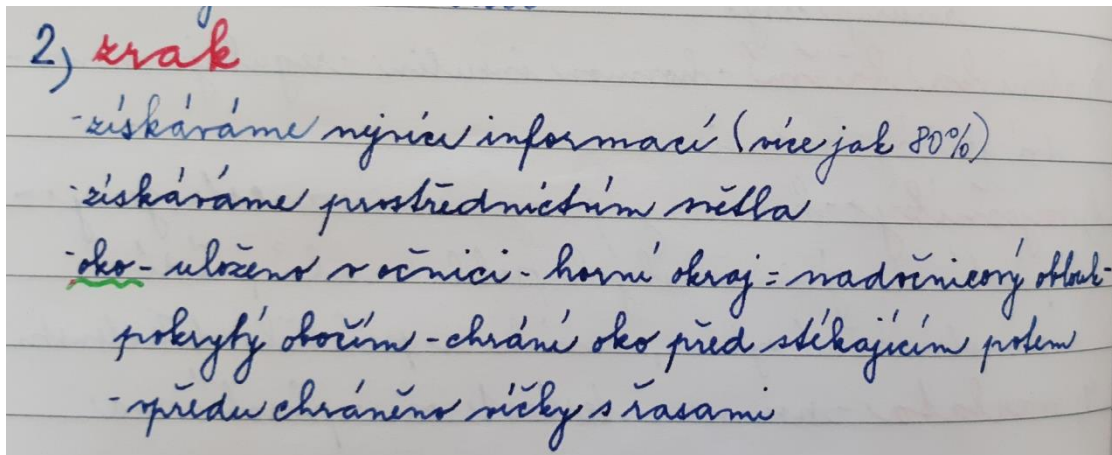 2) zrak
-získáváme nejvíce informací (více jak 80%)
-získáváme prostřednictvím světla
-oko - uloženo v očnici - horní okraj = nadočnicový oblouk-
pokrytý obočím - chrání oko před stékajícím potem
-vpředu chráněno víčky s řasami